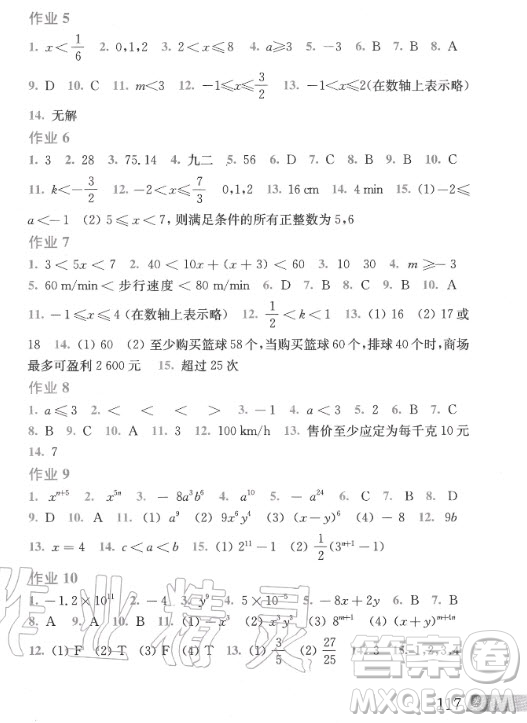 作业 5
1. x<1/6 2. 0,1,2 3. 2<x≤8 4. a≥3 5. -1 6. B 7. B 8. A
9. D 10. C 11. m<3 12. -1≤x≤3/2 13. -1<x≤2(在数轴上表示略)
14. 无解
作业 6
1. 3 2. 28 3. 75.14 4. 九二 5. 56 6. D 7. C 8. C 9. B 10. B
11. k<-3/2 12. -2<x≤7/3 0,1,2 13. 16 cm 14. 4 min 15. (1)-2≤
a<-1 (2) 5≤x<7,则满足条件的所有正整数为 5,6
作业 7
1. 3<5x<7 2. 40<10x+(x+3)<60 3. 10 30 4. m≥-3
5. 60 m/min<步行速度<80 m/min 6. D 7. B 8. B 9. B 10. A
11. -1≤x≤4(在数轴上表示略) 12. 1/2<k<1 13. (1) 16 (2) 17 或
18 14. (1) 60 (2) 至少购买篮球 58 个,当购买篮球 60 个,排球 40 个时,商场
最多可盈利 2 600 元 15. 超过 25 次
作业 8
1. a≤3 2. < < < 3. -1 4. a<3 5. 2 6. B 7. C
8. B 9. C 10. A 11. 3 12. 100 km/h 13. 售价至少应定为每千克 10 元
14. 7
作业 9
1. xⁿ⁺⁵ 2. x⁵ⁿ 3. -8a³b⁶ 4. a¹⁰ 5. -a²⁴ 6. C 7. B 8. B
9. D 10. A 11. (1) a⁹ (2) 9x⁶y² (3) (x-y)⁶ (4) 0 12. 9b
13. x=4 14. c<a<b 15. (1) 2¹¹-1 (2) 1/2(3ⁿ⁺¹-1)
作业 10
1. -1.2×10¹¹ 2. -4 3. y⁹ 4. 5×10⁻⁵ 5. -8x+2y 6. B 7. B
8. A 9. D 10. B 11. (1) -x³ (2) 0 (3) 8m⁶ (4) (x+y)
12. (1) F (2) T (3) F 13. (1) 3/5 (2) 27/25 14. 3 15. -1,2,3,4
117
作业精灵
答案圈
MXQE.COM